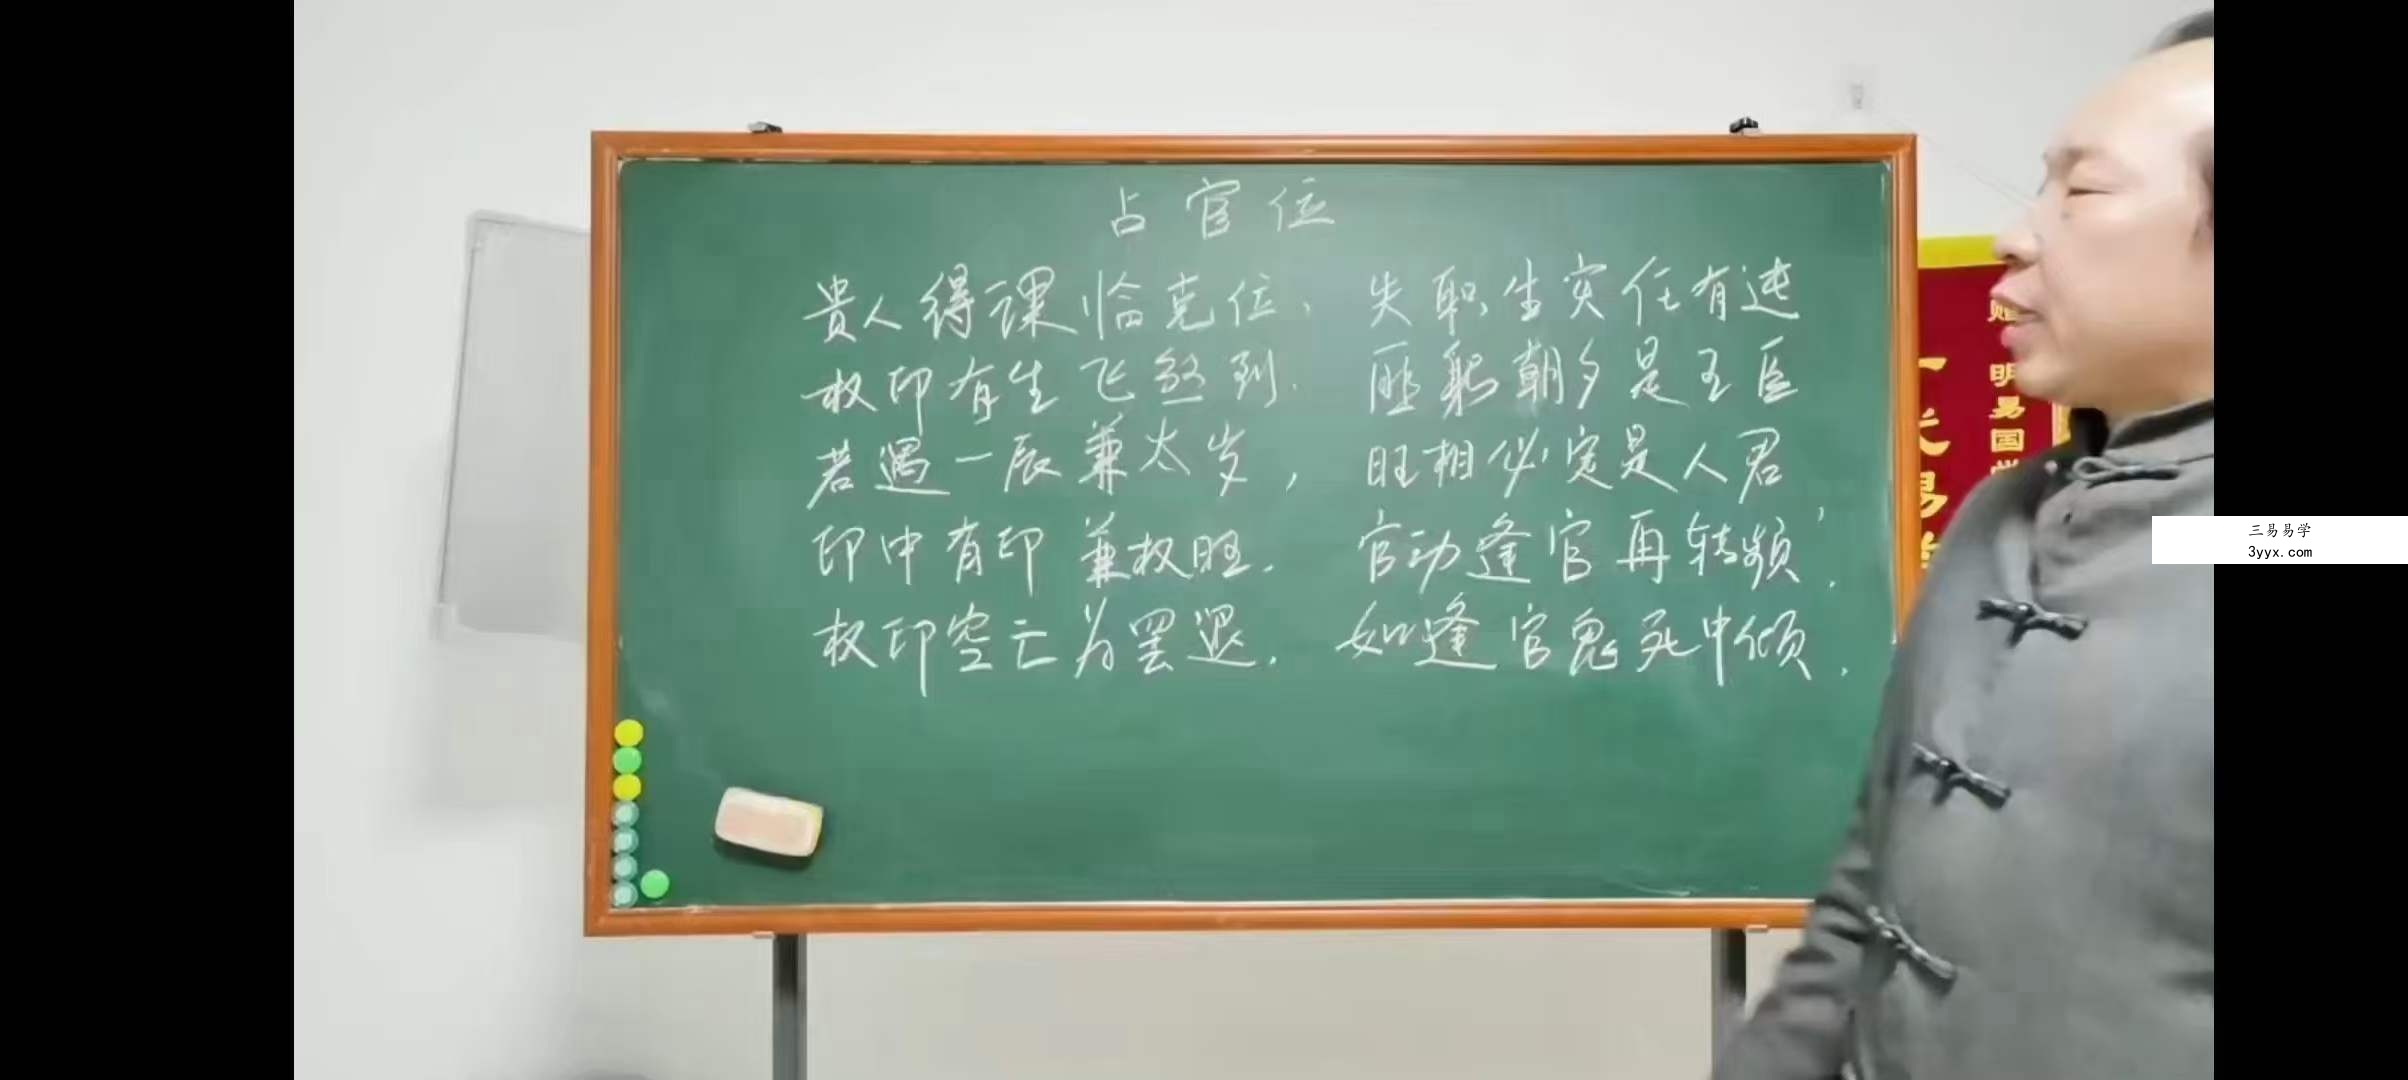 占官位
贵人得课恰克位，失职生灾任有迍
权印有生飞煞到．匪躬朝夕是王臣
若遇一辰兼太岁，旺相必定是人君
印中有印兼权旺．官动逢官再转频．
权印空亡为罢退．如逢官鬼死中倾．
明易国学
三易易学
3yyx.com